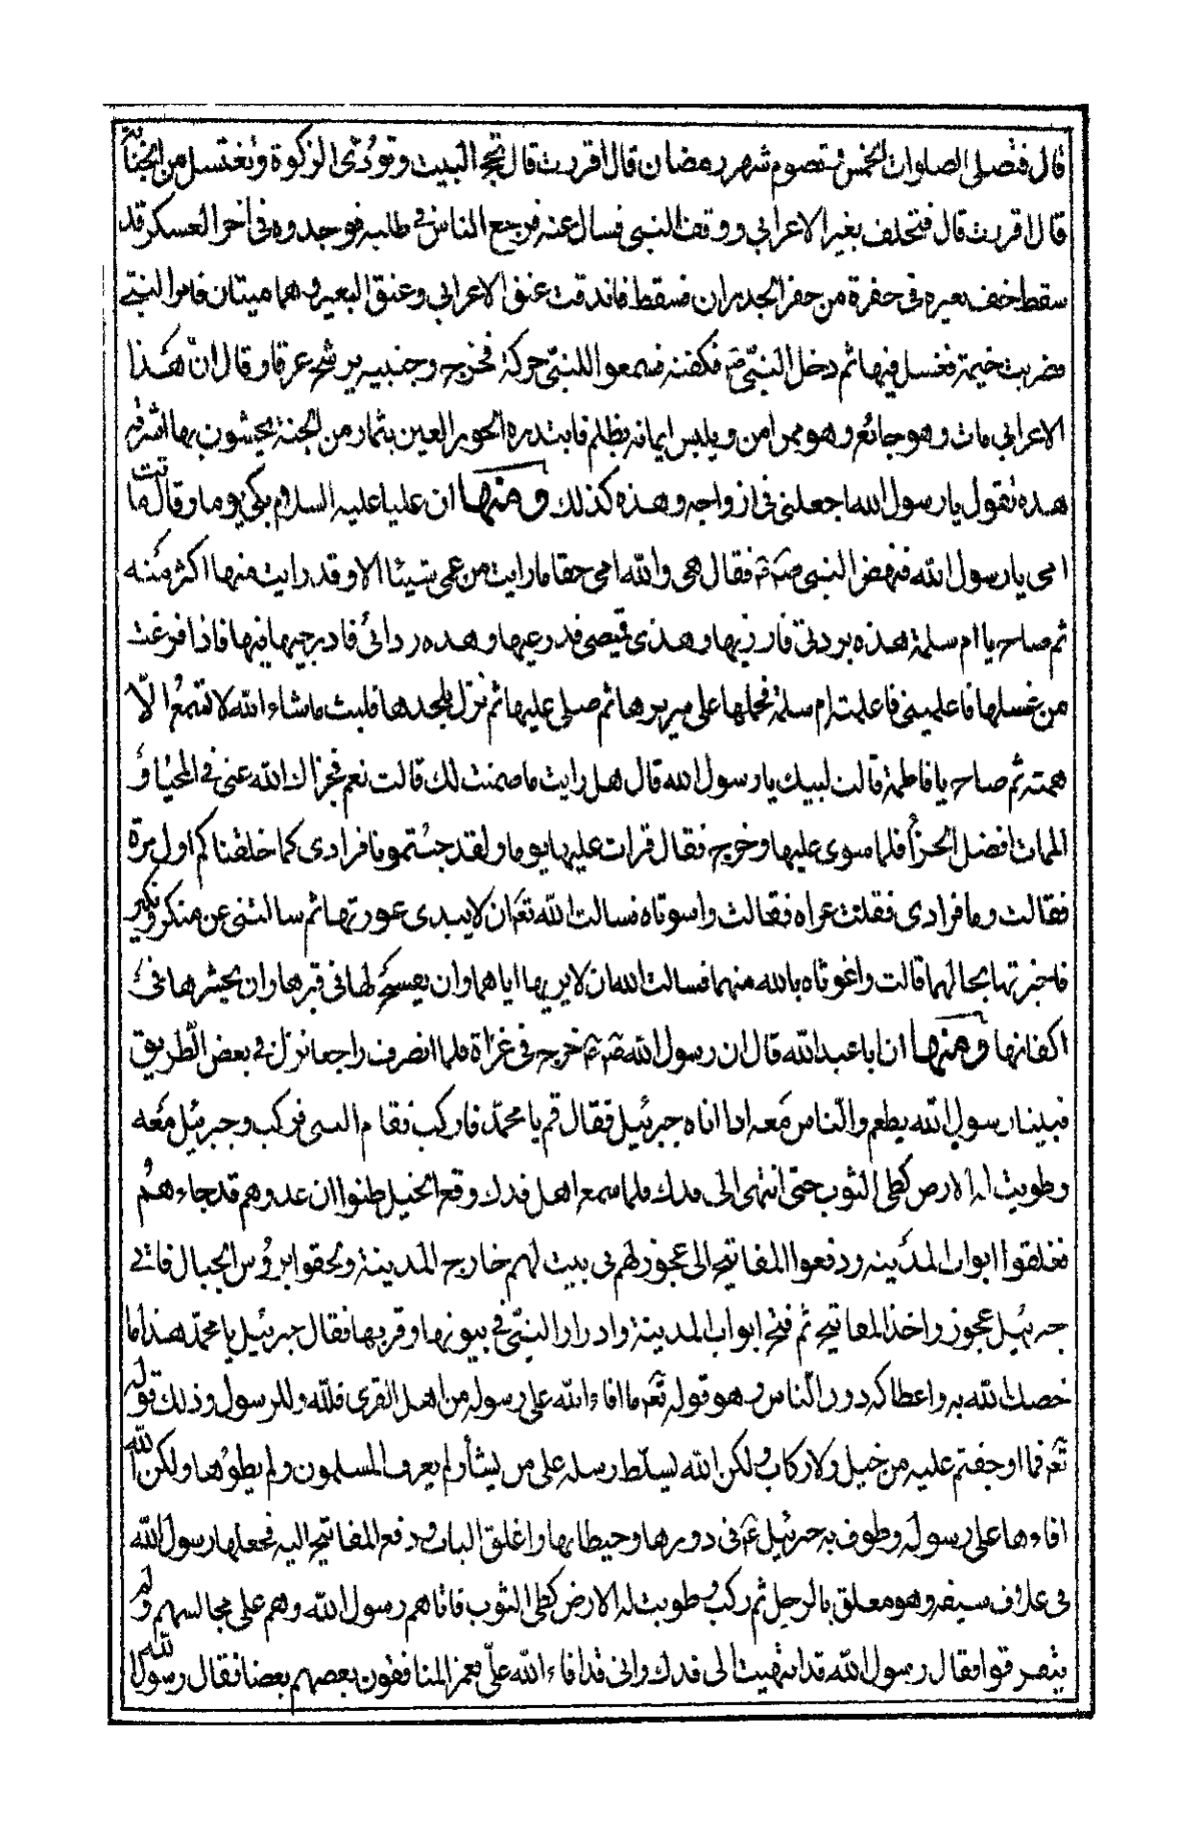 قال فتصلى الصلوات الخمس وتصوم شهر رمضان قال اقررت قال تحج البيت وتؤدّى الزكوة وتغتسل من الجنابة
قال اقررت قال فتخلف بغير الاعرابي ووقف النبى فسال عنه فرجع الناس فى طلبه فوجدوه فى اخر العسكر قد
سقط خف بعيره فى حفرة من حفر الجرذان فسقط فاندقت عنق الاعرابي وعنق البعير وهما ميتان فامر النبيّ
فضربت خيمة فغسل فيها ثم دخل النبيّ صَ فكفنه فسمعوا للنبيّ حركة فخرج وجنبيه يرشح عرقا وقال انّ هَذا
الاعرابي مات وهو جائع وهو ممن امن ويلبس ايمانه بظلم فابتدره الحور العين بثمار من الجنة يحشون بها اشدقه
هده تقول يا رسول الله اجعلنى فى ازواجه وهذه كذلك ومنها ان عليا عليه السلام بكى يوما وقال ماتت
امى يا رسول الله فنهض النبى صَ عَ فقال هى والله امى حقا مارايت من عمى شيئا الا وقد رايت منها اكثر مَنه
ثم صاح يا ام سلمة هذه بردتى فازريها وهذى قميصى فدرعيها وهده ردائى فادرجيها فيها فاذا فرغت
من غسلها فاعلمينى فاعلمته ام سلمة فحملها على سريرها ثم صلى عليها ثم نزل بلحدها فلبث ماشاء الله لا تسمع الّا
همته ثم صاح يا فاطمة قالت لبيك يا رسول الله قال هل رايت ما ضمنت لك قالت نعم فجزاك الله عنى فى المحيا وَ
الممات افضل الجزأ فلما سوى عليها وخرج فقال قرات عليها يوما ولقد جئتمونا فرادى كما خلقناكم اول مرة
فقالت وما فرادى فقلت عراه فقالت واسوتاه فسالت الله تعَ ان لا يبدى عورتها ثم سالتنى عن منكر ونكير
فاخبرتها بحالهما قالت واغوثاه بالله منهما فسالت الله ان لا يريها اياهما وان يفسح لها فى قبرها وان يحشرها فى
اكفانها ومنها ان ابا عبد الله قال ان رسول الله صَ عَ خرج فى غزاة فلما انصرف راجعا نزل فى بعض الطّريق
فبينا رسول الله يطعم والنّاس مَعه اذا اتاه جبرئيل فقال قم يا محمّد فاركب فقام النبى فركب وجبرئيل مَعه
وطويت له الارض كطى الثوب حتى انتهى الى فدك فلما سمع اهل فدك وقع الخيل ظنوا ان عدوهم قد جاءهُم
فغلقوا ابواب المدَينه ودفعوا المفاتيح الى عجوز لهم فى بيت لهم خارج المَدينة ولحقوا برؤس الجبال فاتى
جبرئيل عجوز واخذ المفاتيح ثم فتح ابواب المدينة وادار النبيّ فى بيوتها وقربها فقال جبرئيل يا محمّد هذا ما
خصك الله به واعطاكه دون النّاس وهو قوله تعَ ما افاء الله على رسوله من اهل القرى فلله وللرسول وذلك قوله
تعَ فما اوجفتم عليه من خيل ولا ركاب ولكن الله يسلّط رسله على من يشأ ولم يعرف المسلمون ولم يطؤها ولكن الله
افاءها على رسوله وطوف به جبرئيل عَ فى دورها وحيطانها واغلق الباب ودفع المفاتيح اليه فجعلها رسول الله
فى علاف سيفه وهو معلق بالرحل ثم ركب وطويت له الارض كطى الثوب فاتاهم رسول الله وهم على مجالسهم وَلم
يتفرقوا فقال رسول الله قد انتهيت الى فدك وانى قد افاء الله علىّ فغمز المنافقون بعضهم بعضا فقال رسول الله